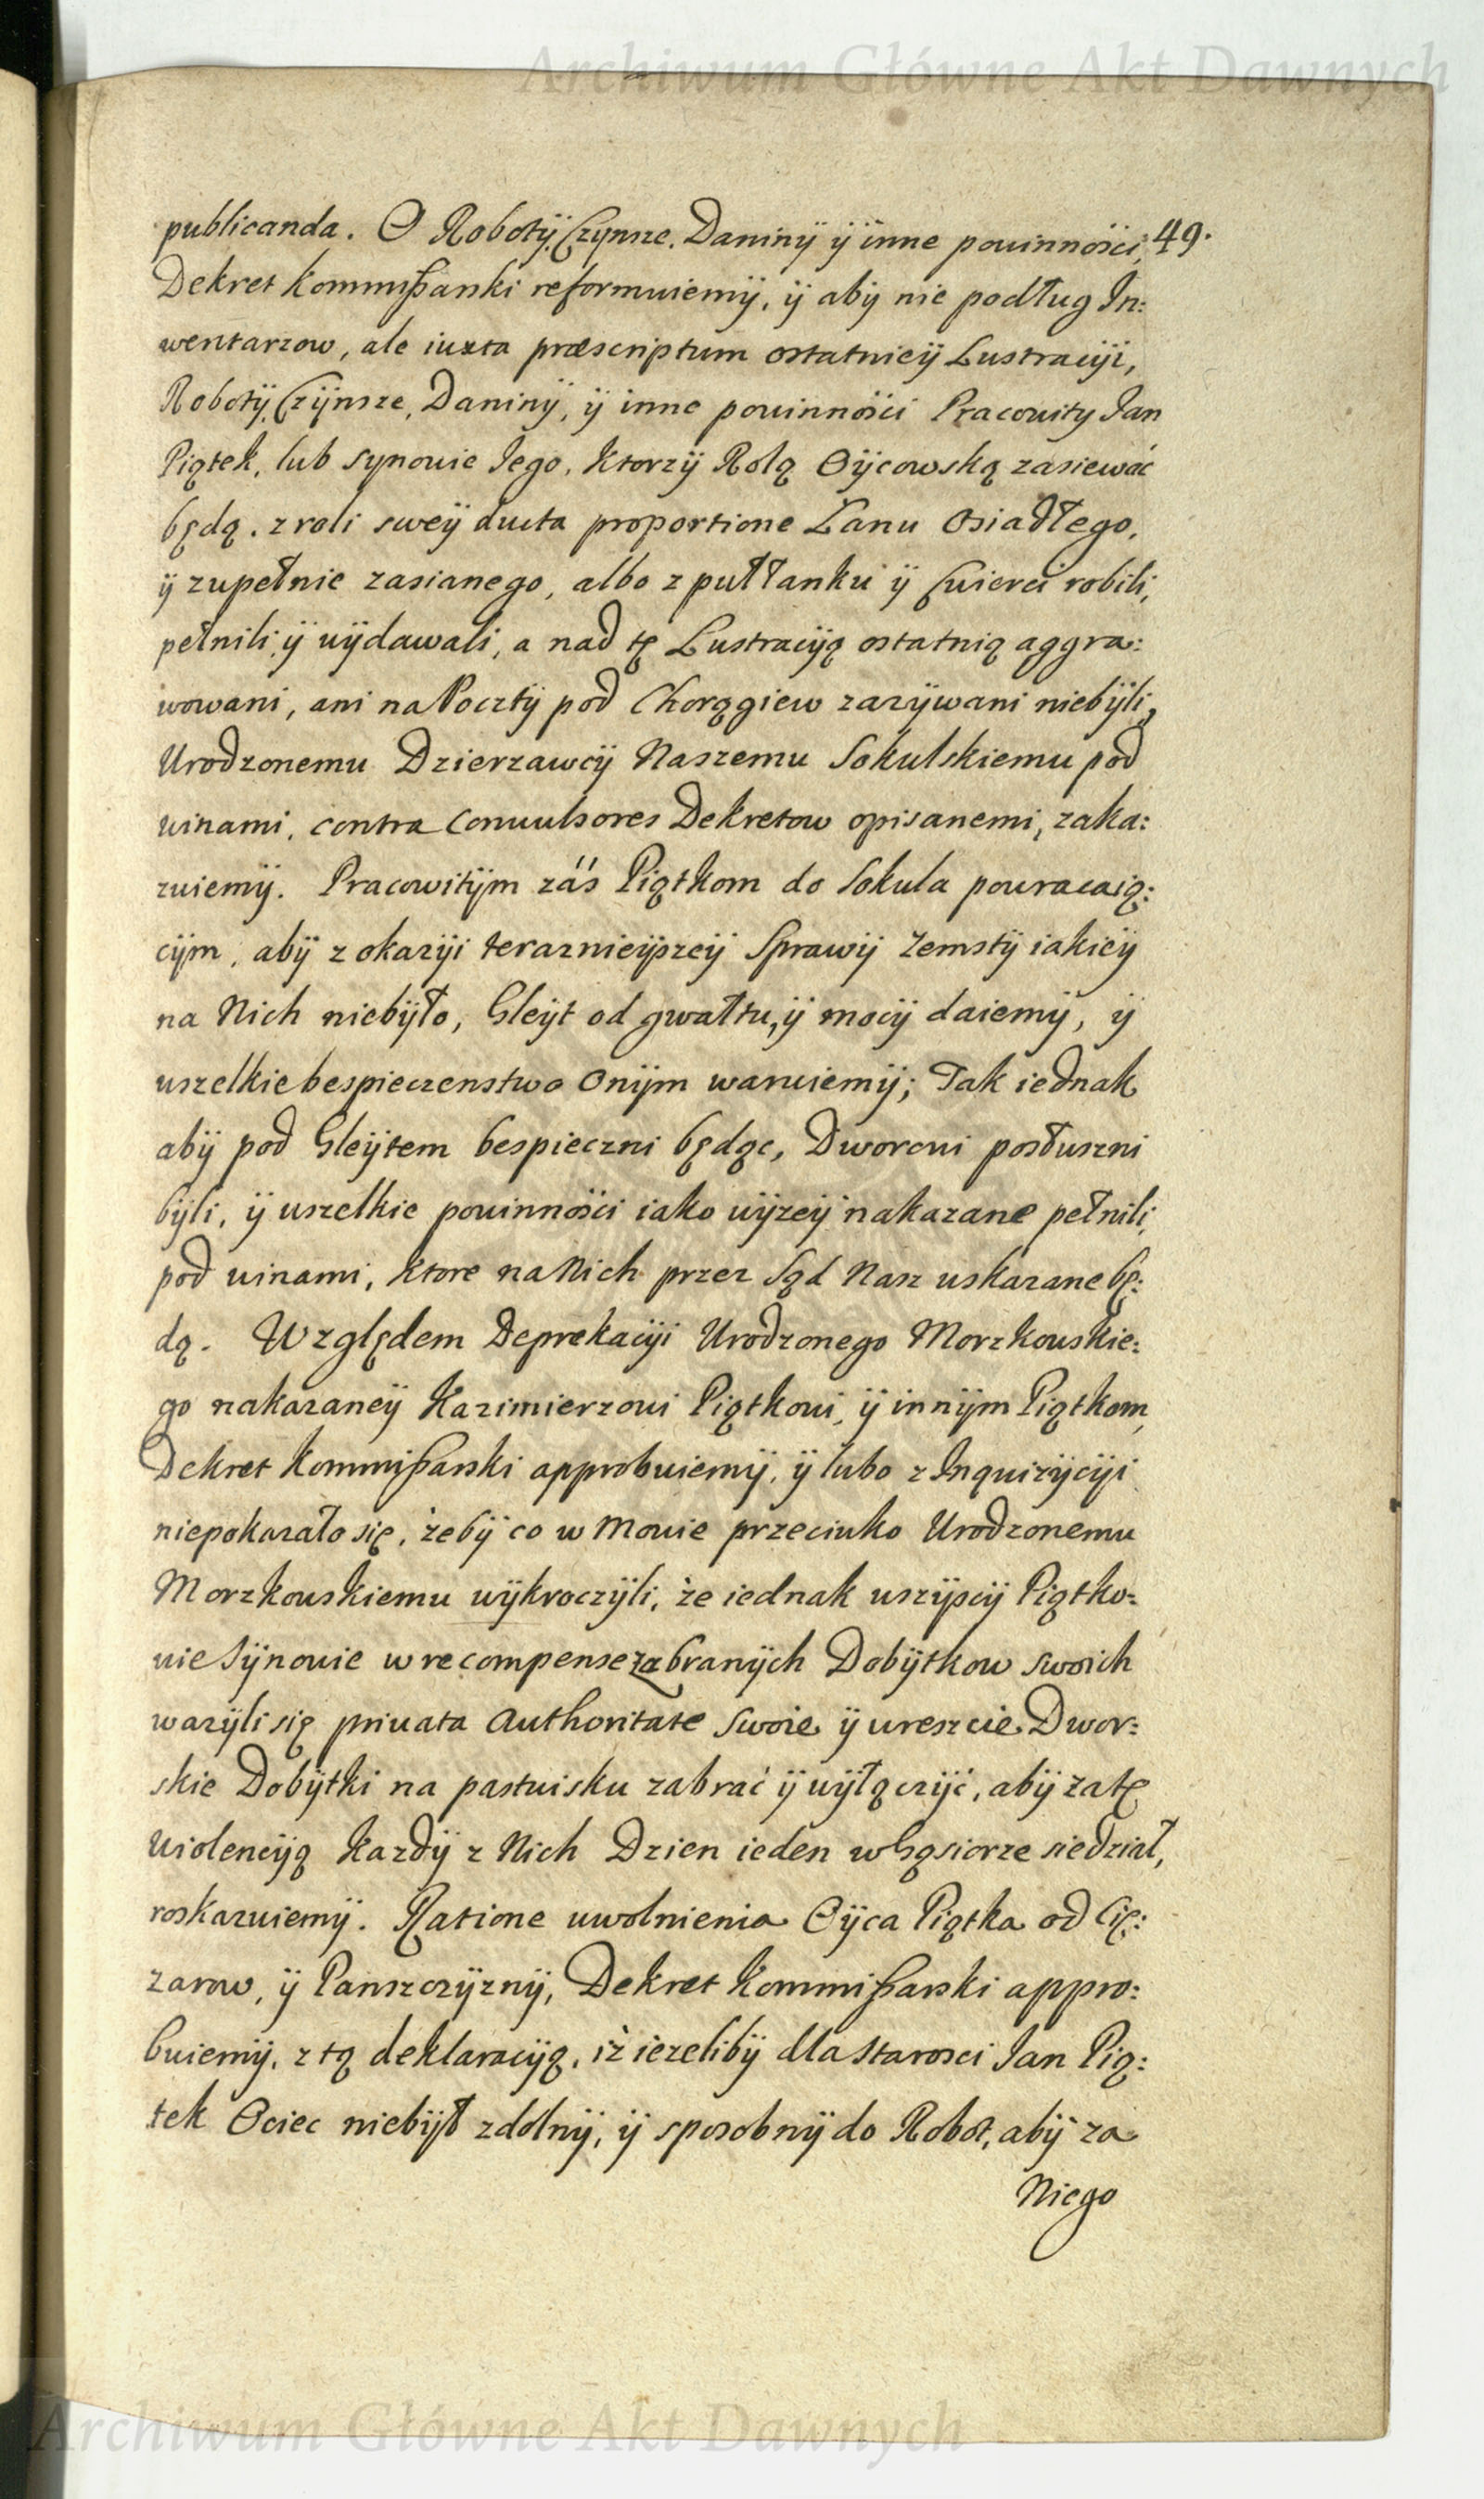 Archiwum Główne Akt Dawnych
publicanda. O Robotÿ, Czynsze, Daninÿ ÿ inne powinności, 49.
Dekret Kommißarski reformuiemÿ, ÿ abÿ nie podług In:
wentarzow, ale iuxta præscriptum ostatnieÿ Lustracÿi,
Robotÿ, Czÿnsze, Daninÿ, ÿ inne powinności Pracowity Jan
Piątek, lub synowie Jego, Ktorzÿ Rolą Oÿcowską zasiewać
będą. z roli sweÿ ducta proportione Łanu Osiadłego,
ÿ zupełnie zasianego, albo z pułłanku ÿ Cwierci robili,
pełnili, ÿ wÿdawali, a nad tę Lustracÿą ostatnią aggra:
wowani, ani na Pocztÿ pod Chorągiew zazÿwani niebÿli,
Urodzonemu Dzierzawcÿ Naszemu Sokulskiemu pod
winami, contra Convulsores Dekretow opisanemi, zaka:
zuiemÿ. Pracowitÿm záś Piątkom do Sokula powracaią:
cÿm, abÿ z okazÿi teraznieÿszeÿ Sprawÿ Zemstÿ iakieÿ
na Nich niebÿło, Gleÿt od gwałtu, ÿ mocÿ daiemÿ, ÿ
wszelkie bespieczenstwo Onÿm waruiemÿ; Tak iednak
abÿ pod Gleÿtem bespieczni będąc, Dworowi posłuszni
bÿli, ÿ wszelkie powinności iako wÿzeÿ nakazane pełnili,
pod winami, Ktore na Nich przez Sąd Nasz wskazane bę:
dą. Względem Deprekacÿi Urodzonego Morzkowskie:
go nakazaneÿ Kazimierzowi Piątkowi, ÿ innÿm Piątkom,
Dekret Kommißarski approbuiemÿ, ÿ lubo z Inquizÿcÿi
niepokazało się, żebÿ co w Mowie przeciwko Urodzonemu
Morzkowskiemu wÿkroczÿli, że iednak wszÿscÿ Piątko:
wie Sÿnowie w recompensę zabranÿch Dobÿtkow swoich
wazÿli się privata Authoritate Swoie ÿ wreszcie Dwor:
skie Dobÿtki na pastwisku zabrać ÿ wÿłączÿć, abÿ za tę
Violencÿą Kazdÿ z Nich Dzien ieden w Gąsiorze siedział,
roskazuiemÿ. Ratione uwolnienia Oÿca Piątka od Cię:
zarow, ÿ Panszczÿznÿ, Dekret Kommißarski appro:
buiemÿ, z tą deklaracÿą, iż iezelibÿ dla Starosci Jan Pią:
tek Ociec niebÿł zdolnÿ, ÿ sposobnÿ do Robot, abÿ za
Niego
Archiwum Główne Akt Dawnych